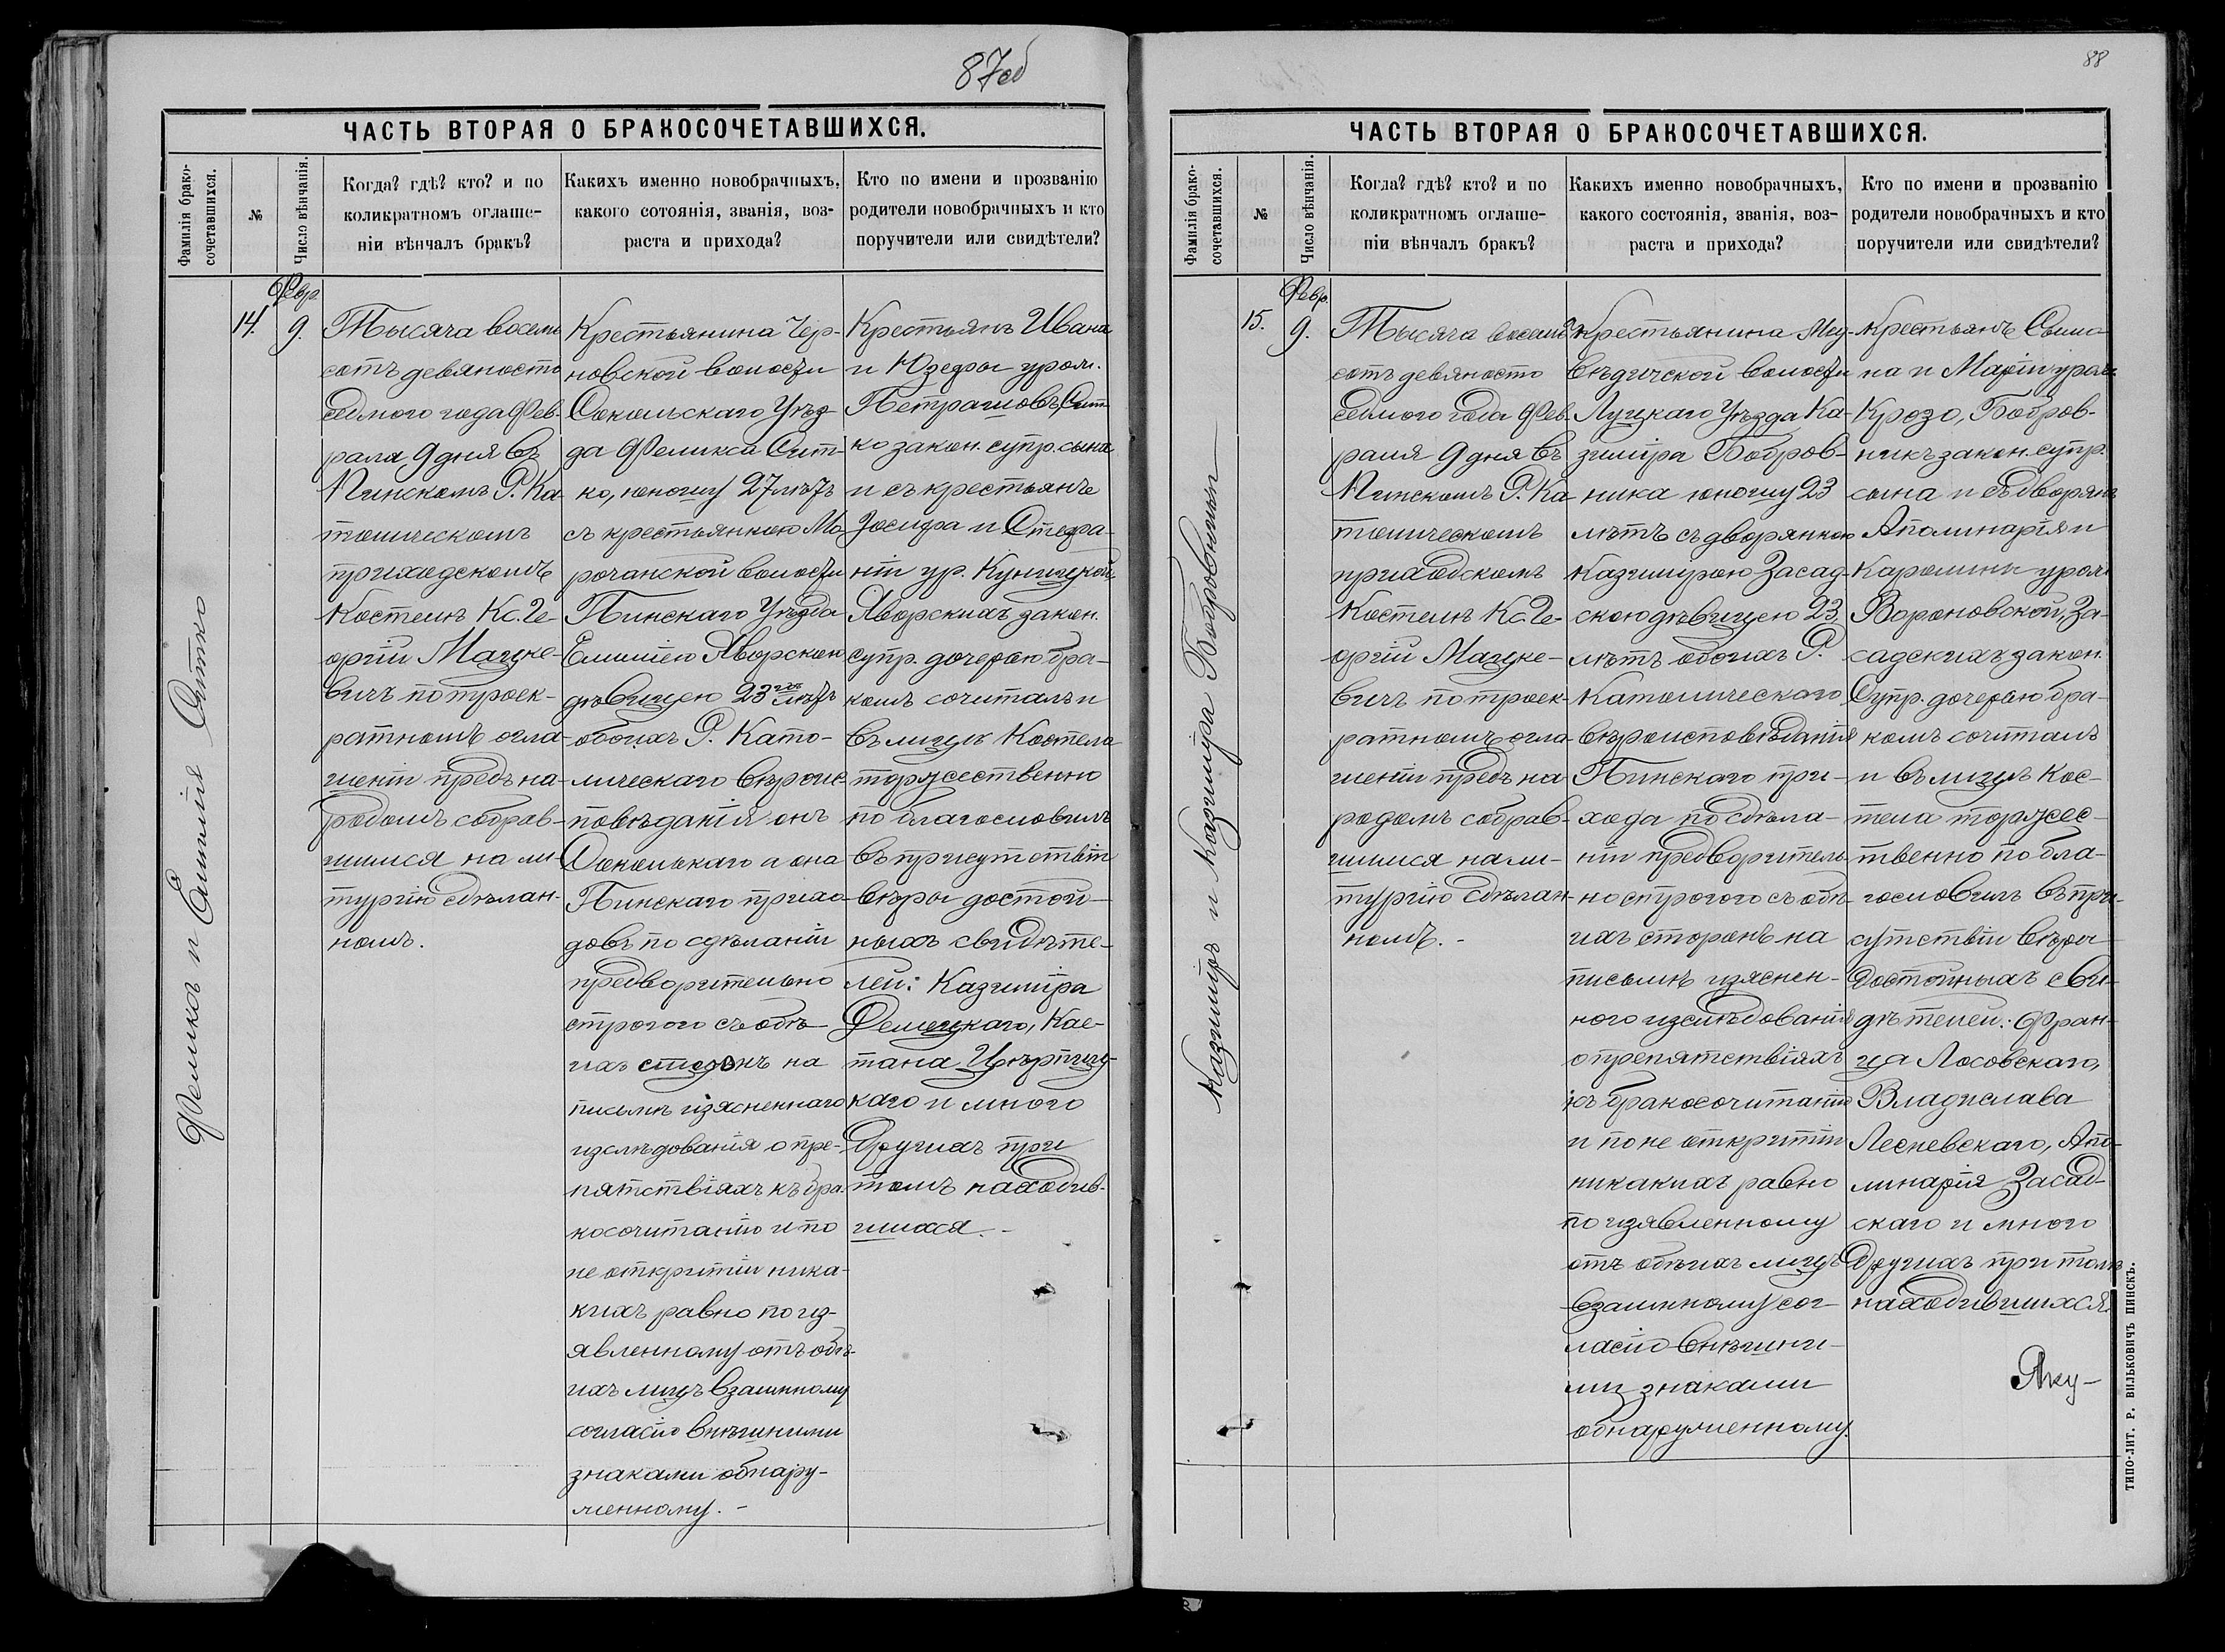 87об
ЧАСТЬ ВТОРАЯ О БРАКОСОЧЕТАВШИХСЯ.
Фамилія брако-
сочетавшихся.
№
Число вѣнчанія.
Когда? гдѣ? кто? и по
коликратномъ оглаше-
ніи вѣнчалъ бракъ?
Какихъ именно новобрачныхъ,
какого сотоянія, званія, воз-
раста и прихода?
Кто по имени и прозванію
родители новобрачныхъ и кто
поручители или свидѣтели?
Феликсъ и Емилія Ситко
14.
Февр.
9.
Тысяча восемь
сотъ девяносто
седмого года Фев-
раля 9 дня въ
Пинскомъ Р. Ка
толическомъ
приходскомъ
Костелѣ Кс. Ге-
оргій Мацке-
вичъ по троек-
ратномъ огла-
шеніи предъ на-
родомъ собрав-
шимся на ли-
тургію сдѣлан-
номъ.
Крестьянина Чер-
новской волости
Сокольскаго Уѣз-
да Феликса Сит-
ко, юношу 27 лѣтъ
съ крестьянкою Мо-
рочанской волости
Пинскаго Уѣзда
Емиліею Яворскою
дѣвицею 23 лѣтъ
обоихъ Р. Като-
лическаго вѣроис-
повѣданія онъ
Сокольскаго а она
Пинскаго прихо-
довъ по сдѣланіи
предворительно
строгого съ обѣ-
ихъ сторонъ на
письмѣ изясненнаго
изслѣдованія о пре-
пятствіяхъ къ бра-
косочитанію и по
не откритіи ника-
кихъ равно по из-
явленному отъ обѣ-
ихъ лицъ взаимному
согласію внѣшними
знаками обнару-
женному.-
Крестьянъ Ивана
и Юзефы урож.
Петрашовъ, Сит-
ко закон. супр. сына
и съ крестьянъ
Іосифа и Стефа-
ніи ур. Куницкой,
Яворскихъ закон.
супр. дочерью бра-
комъ сочиталъ и
въ лицѣ Костела
торжественно
поблагословилъ
въ присутствіи
вѣры достой-
ныхъ свидѣте-
лей: Казиміра
Кае-
тана
каго и много
другихъ при
томъ находив-
шихся.-
88
ЧАСТЬ ВТОРАЯ О БРАКОСОЧЕТАВШИХСЯ.
Фамилія брако-
сочетавшихся.
№
Число вѣнчанія.
Когда? гдѣ? кто? и по
коликратномъ оглаше-
ніи вѣнчалъ бракъ?
Какихъ именно новобрачныхъ,
какого состоянія, званія, воз-
раста и прихода?
Кто по имени и прозванію
родители новобрачныхъ и кто
поручители или свидѣтели?
Казиміръ и Казиміра Бобровники
15.
Февр.
9.
Тысяча восемь
сотъ девяносто
седмого года Фев-
раля 9 дня въ
Пинскомъ Р. Ка
толическомъ
приходскомъ
Костелѣ Кс. Ге-
оргій Мацке-
вичъ по троек-
ратномъ огла-
шеніи предъ на
родомъ собрав-
шимся на ли-
тургію сдѣлан-
номъ.-
Крестьянина Мед-
вѣдичской волости
Луцкаго Уѣзда Ка-
зиміра Бобров-
ника юношу 23
лѣтъ съ дворянкою
Казимірою Засад-
скою дѣвицею 23
лѣтъ обоихъ Р.
Католическаго
вѣроисповѣданія
Пинскаго при-
хода по сдѣла-
ніи предворитель
но строгого съ обѣ-
ихъ сторонъ на
письмѣ изяснен-
ного изслѣдованія
о препятствіяхъ
къ бракосочитанію
и по не откритіи
никакихъ равно
по изявленному
отъ обѣихъ лицъ
взаимному сог-
ласію внѣшни-
ми знаками
обнаруженному.
Крестьянъ Симо
на и Маріи урож.
Крозо, Бобров-
никъ закон. супр.
сына и съ дворянъ
Аполинарія и
Каролины урож.
Вороновской, За-
садскихъ закон.
супр. дочерью бра-
комъ сочиталъ
и въ лицѣ Кос-
тела торжес-
твенно побла-
гословилъ въ при-
сутствіи вѣры
достойныхъ сви-
дѣтелей: Фран-
ца Лосовскаго,
Владислава
Лесневскаго, Апо-
линарія Засад-
скаго и много
другихъ при томъ
находившихся.
Яку-
ТИПО-ЛИТ. Р. ВИЛЬКОВИЧЪ ПИНСКЪ.